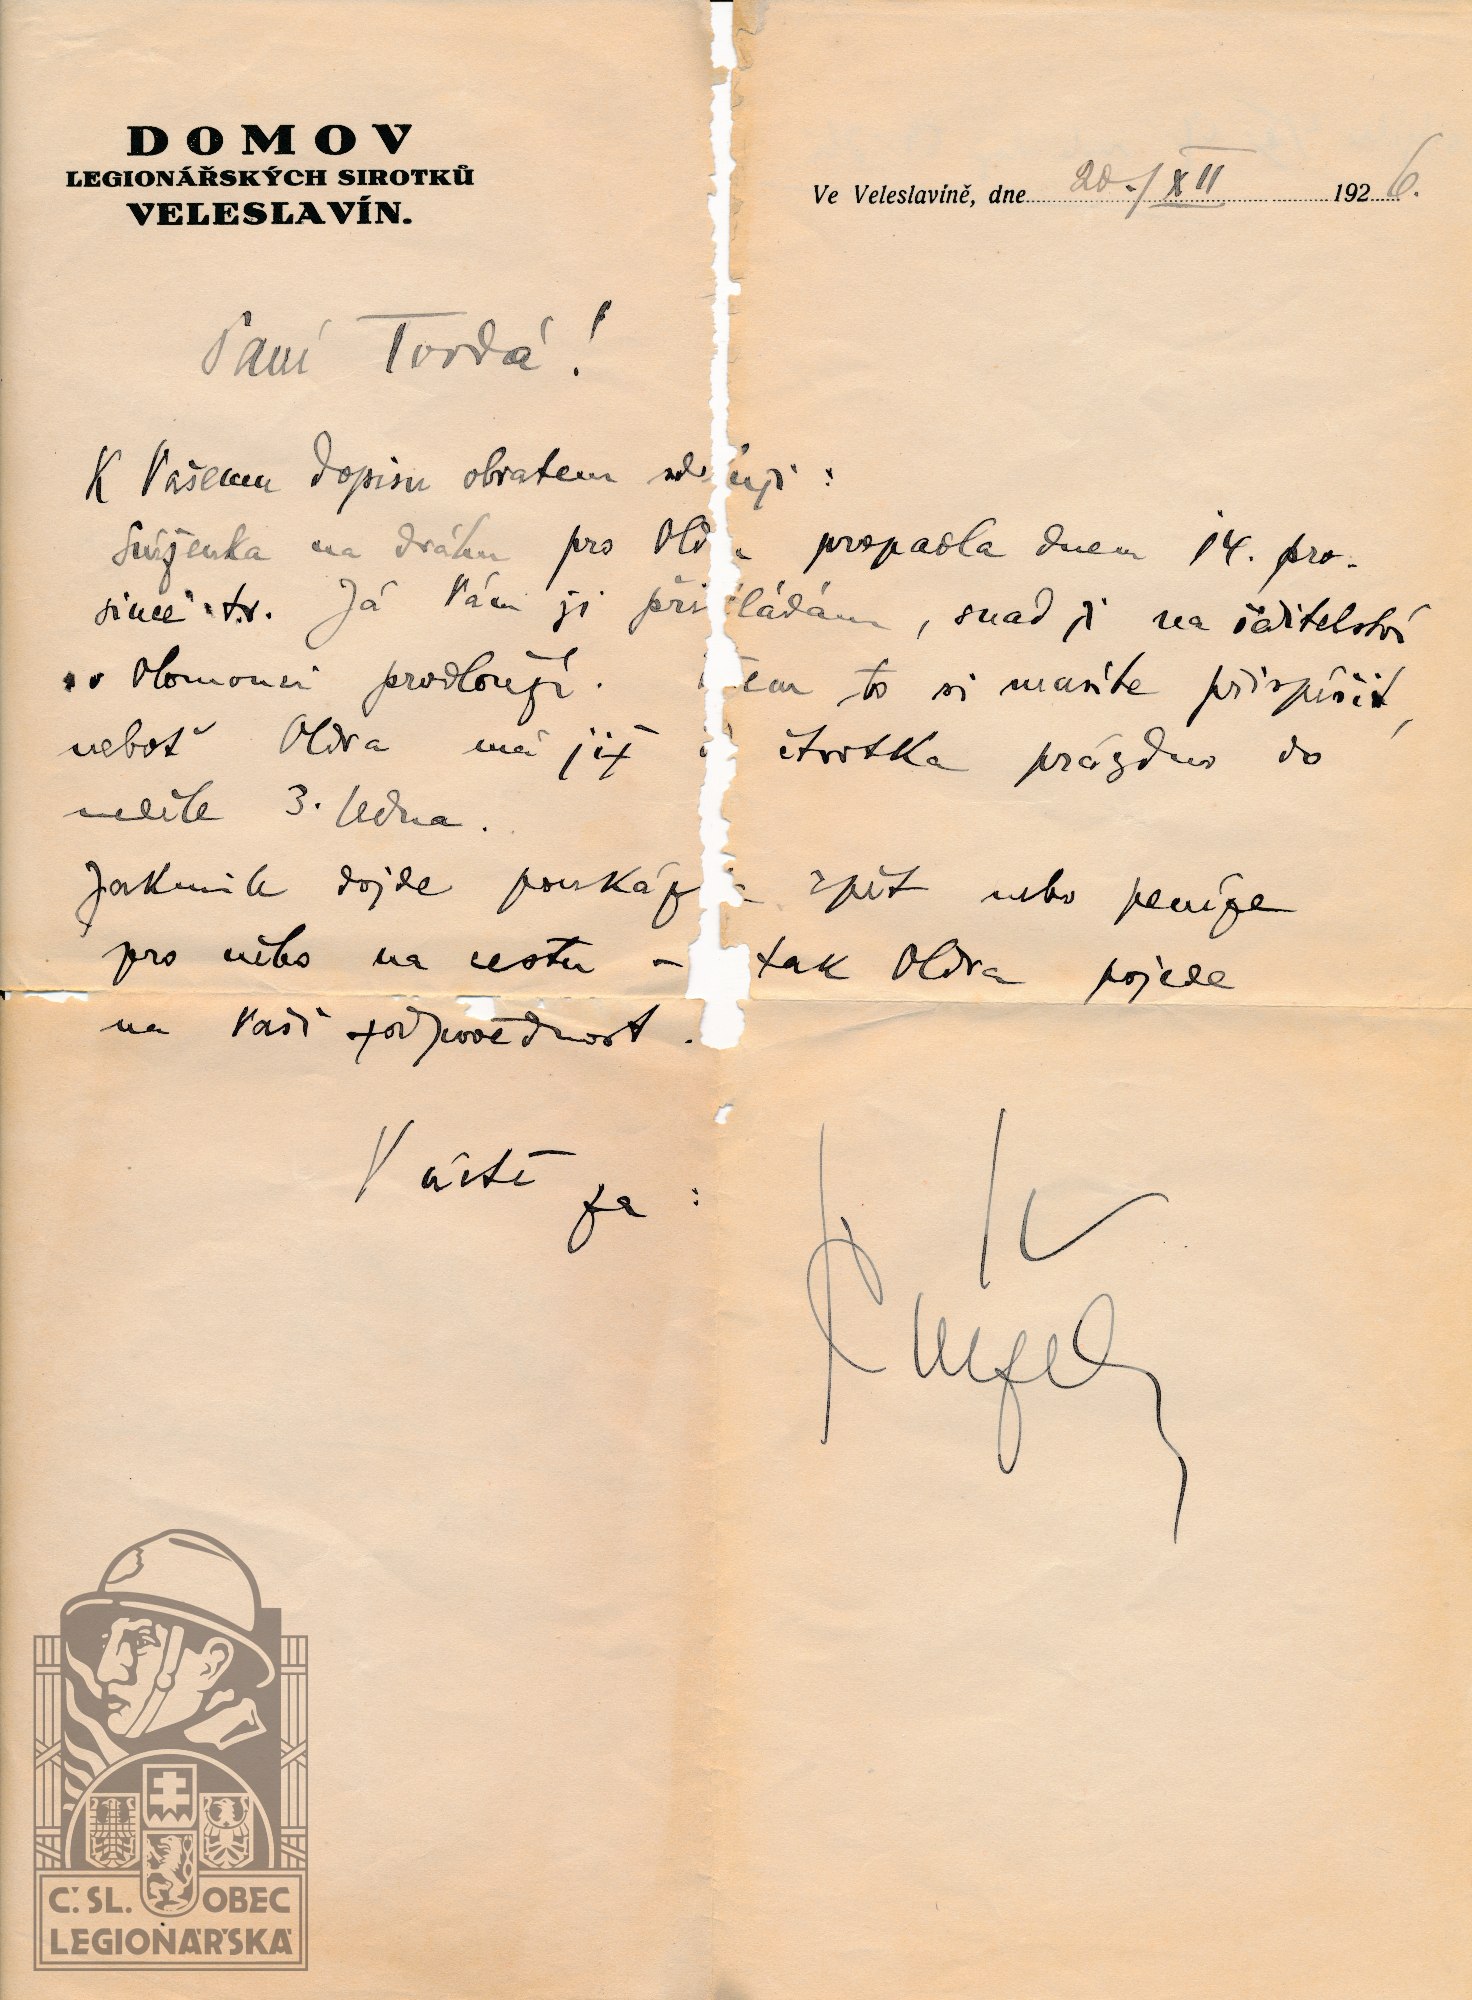 DOMOV
LEGIONÁŘSKÝCH SIROTKŮ
VELESLAVÍN.
Ve Veleslavíně, dne 20./XII 1926.
Paní Tvrdá!
K Vašemu dopisu obratem sděluji:
Sníženka na dráhu pro Oldru propadla dnem 14. pro-
since t.r. Já Vám ji přikládám, snad ji na ředitelství
v Olomouci prodlouží. to si musíte přispíšit,
neboť Oldra má již čtvrtka prázdno do
neděle 3. ledna.
Jakmile dojde poukázka zpět nebo peníze
pro něho na cestu – tak Oldra pojede
na Vaši zodpovědnost.
V úctě
za:
Č.SL. OBEC
LEGIONÁŘSKÁ